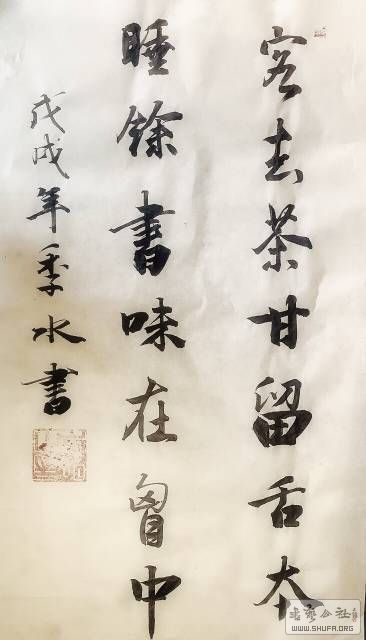 客去茶甘留舌本
睡餘書味在胷中
戊戌年季水書
WWW.SHUFA.ORG